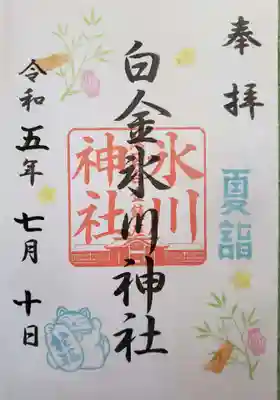 奉拝
夏詣
白金氷川神社
氷川神社
令和五年七月十日